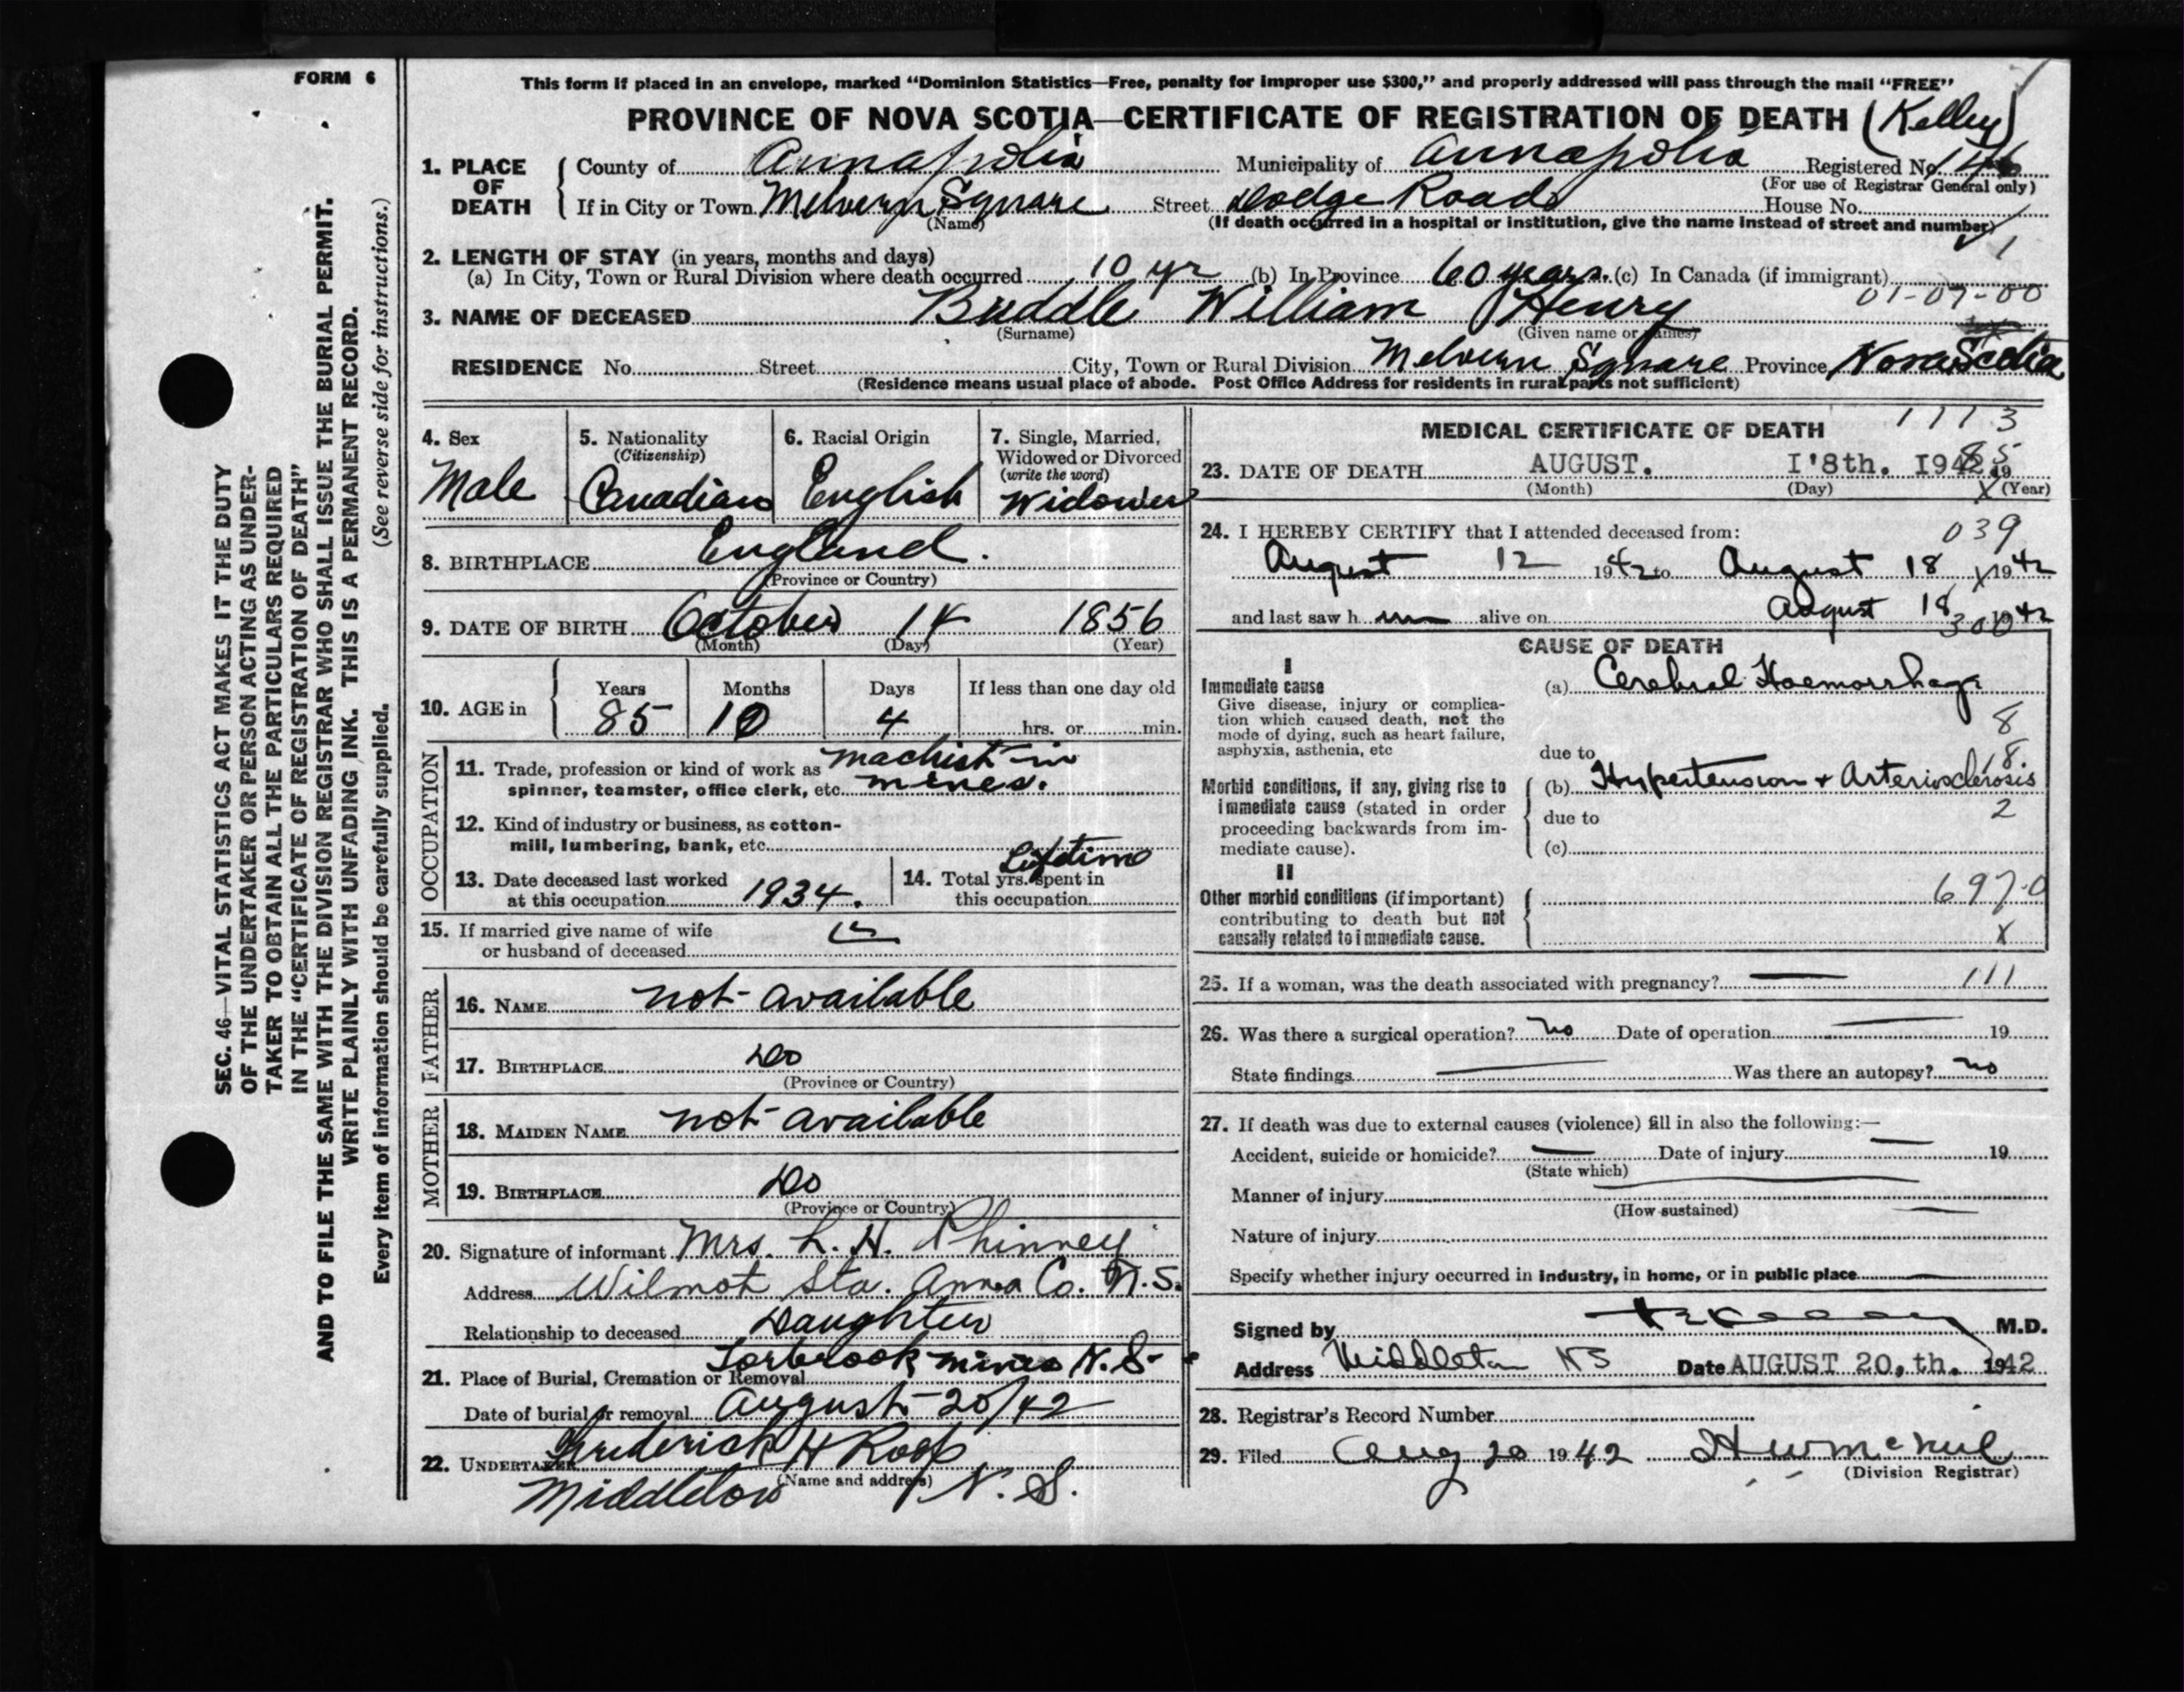 FORM 6
This form if placed in an envelope, marked “Dominion Statistics—Free, penalty for improper use $300,” and properly addressed will pass through the mail “FREE”
PROVINCE OF NOVA SCOTIA—CERTIFICATE OF REGISTRATION OF DEATH (Kelley)
1. PLACE OF DEATH County of Annapolis Municipality of Annapolis Registered No. 146
(For use of Registrar General only)
If in City or Town Melvern Square Street Dodge Road House No.
(Name) (If death occurred in a hospital or institution, give the name instead of street and number)
1
2. LENGTH OF STAY (in years, months and days)
(a) In City, Town or Rural Division where death occurred 10 yr (b) In Province 60 years. (c) In Canada (if immigrant)
01-07-00
3. NAME OF DECEASED Buddle William Henry
(Surname) (Given name or names)
RESIDENCE No. Street City, Town or Rural Division Melvern Square Province Nova Scotia
(Residence means usual place of abode. Post Office Address for residents in rural parts not sufficient)
4. Sex
Male
5. Nationality
(Citizenship)
Canadian
6. Racial Origin
English
7. Single, Married,
Widowed or Divorced
(write the word)
Widower
8. BIRTHPLACE England.
(Province or Country)
9. DATE OF BIRTH October 14 1856
(Month) (Day) (Year)
10. AGE in Years Months Days If less than one day old
85 10 4 hrs. or min.
OCCUPATION
11. Trade, profession or kind of work as machist in
spinner, teamster, office clerk, etc. mines.
12. Kind of industry or business, as cotton-
mill, lumbering, bank, etc.
13. Date deceased last worked
at this occupation 1934.
14. Total yrs. spent in
this occupation Lifetime
15. If married give name of wife
or husband of deceased
FATHER
16. NAME not available
17. BIRTHPLACE Do
(Province or Country)
MOTHER
18. MAIDEN NAME not available
19. BIRTHPLACE Do
(Province or Country)
20. Signature of informant Mrs. L. H. Phinney
Address Wilmot Sta. Anna Co. N.S.
Relationship to deceased Daughter
21. Place of Burial, Cremation or Removal Torbrook mines N.S.
Date of burial or removal August 20/42
22. UNDERTAKER Frederick H Roop
(Name and address)
Middleton N.S.
1113
MEDICAL CERTIFICATE OF DEATH
85
23. DATE OF DEATH AUGUST. I'8th. I942. 19
(Month) (Day) X (Year)
24. I HEREBY CERTIFY that I attended deceased from: 039
August 12 1942 to August 18 X 1942
and last saw h im alive on August 18 1942
300
CAUSE OF DEATH
I
Immediate cause
Give disease, injury or complica-
tion which caused death, not the
mode of dying, such as heart failure,
asphyxia, asthenia, etc
(a) Cerebral Haemorrhage
8
due to
18
Morbid conditions, if any, giving rise to
immediate cause (stated in order
proceeding backwards from im-
mediate cause).
(b) Hypertension + Arteriosclerosis
due to 2
(c)
II
Other morbid conditions (if important)
contributing to death but not
causally related to immediate cause.
697.0
X
25. If a woman, was the death associated with pregnancy? 111
26. Was there a surgical operation? no Date of operation 19
State findings Was there an autopsy? no
27. If death was due to external causes (violence) fill in also the following:—
Accident, suicide or homicide? Date of injury 19
(State which)
Manner of injury
(How sustained)
Nature of injury
Specify whether injury occurred in industry, in home, or in public place
Signed by M.D.
Address Middleton NS Date AUGUST 20,th. 1942
28. Registrar's Record Number
29. Filed Aug 20 1942 H W McNeil
(Division Registrar)
SEC. 46—VITAL STATISTICS ACT MAKES IT THE DUTY
OF THE UNDERTAKER OR PERSON ACTING AS UNDER-
TAKER TO OBTAIN ALL THE PARTICULARS REQUIRED
IN THE “CERTIFICATE OF REGISTRATION OF DEATH”
AND TO FILE THE SAME WITH THE DIVISION REGISTRAR WHO SHALL ISSUE THE BURIAL PERMIT.
WRITE PLAINLY WITH UNFADING INK. THIS IS A PERMANENT RECORD.
Every item of information should be carefully supplied. (See reverse side for instructions.)